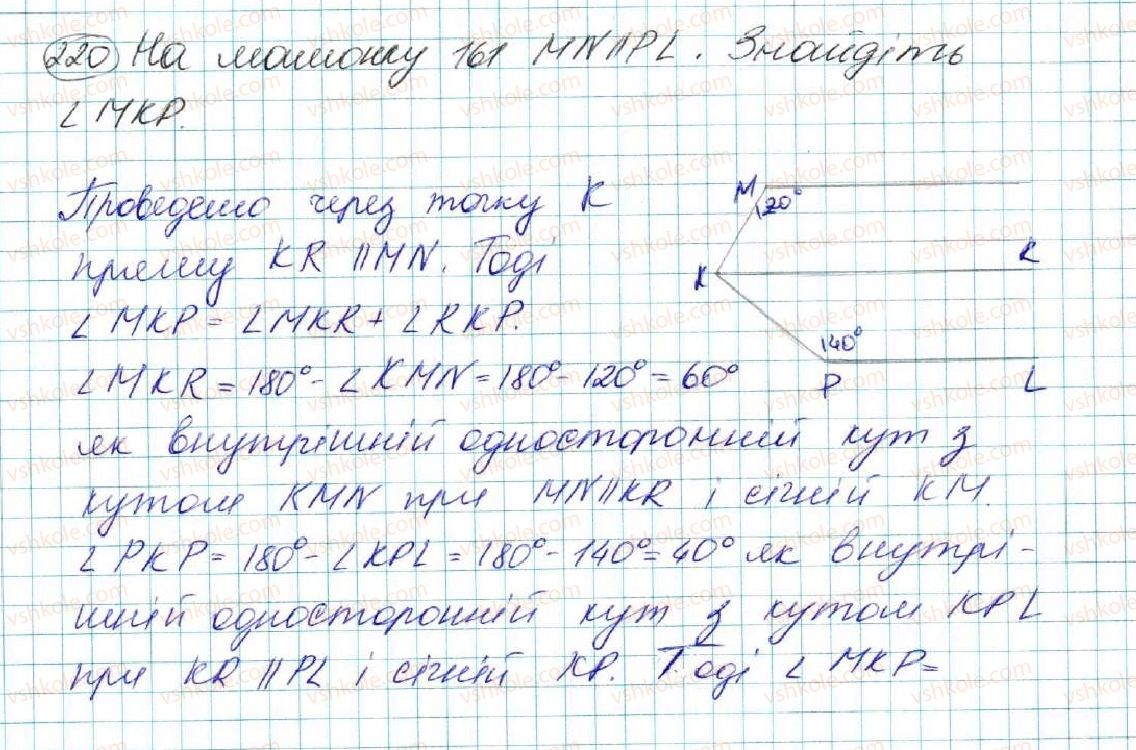 220 На малюнку 161 MN||PL. Знайдіть
∠MKP.
Проведемо через точку K
пряму KR||MN. Тоді
∠MKP=∠MKR+∠RKP.
∠MKR=180°-∠KMN=180°-120°=60°
як внутрішній односторонний кут з
кутом KMN при MN||KR і січній KM.
∠PKP=180°-∠KPL=180°-140°=40° як внутрі-
шній односторонній кут з кутом KPL
при KR||PL і січній KP. Тоді ∠MKP=
M
120°
K
R
140°
P
L
vshkole.com